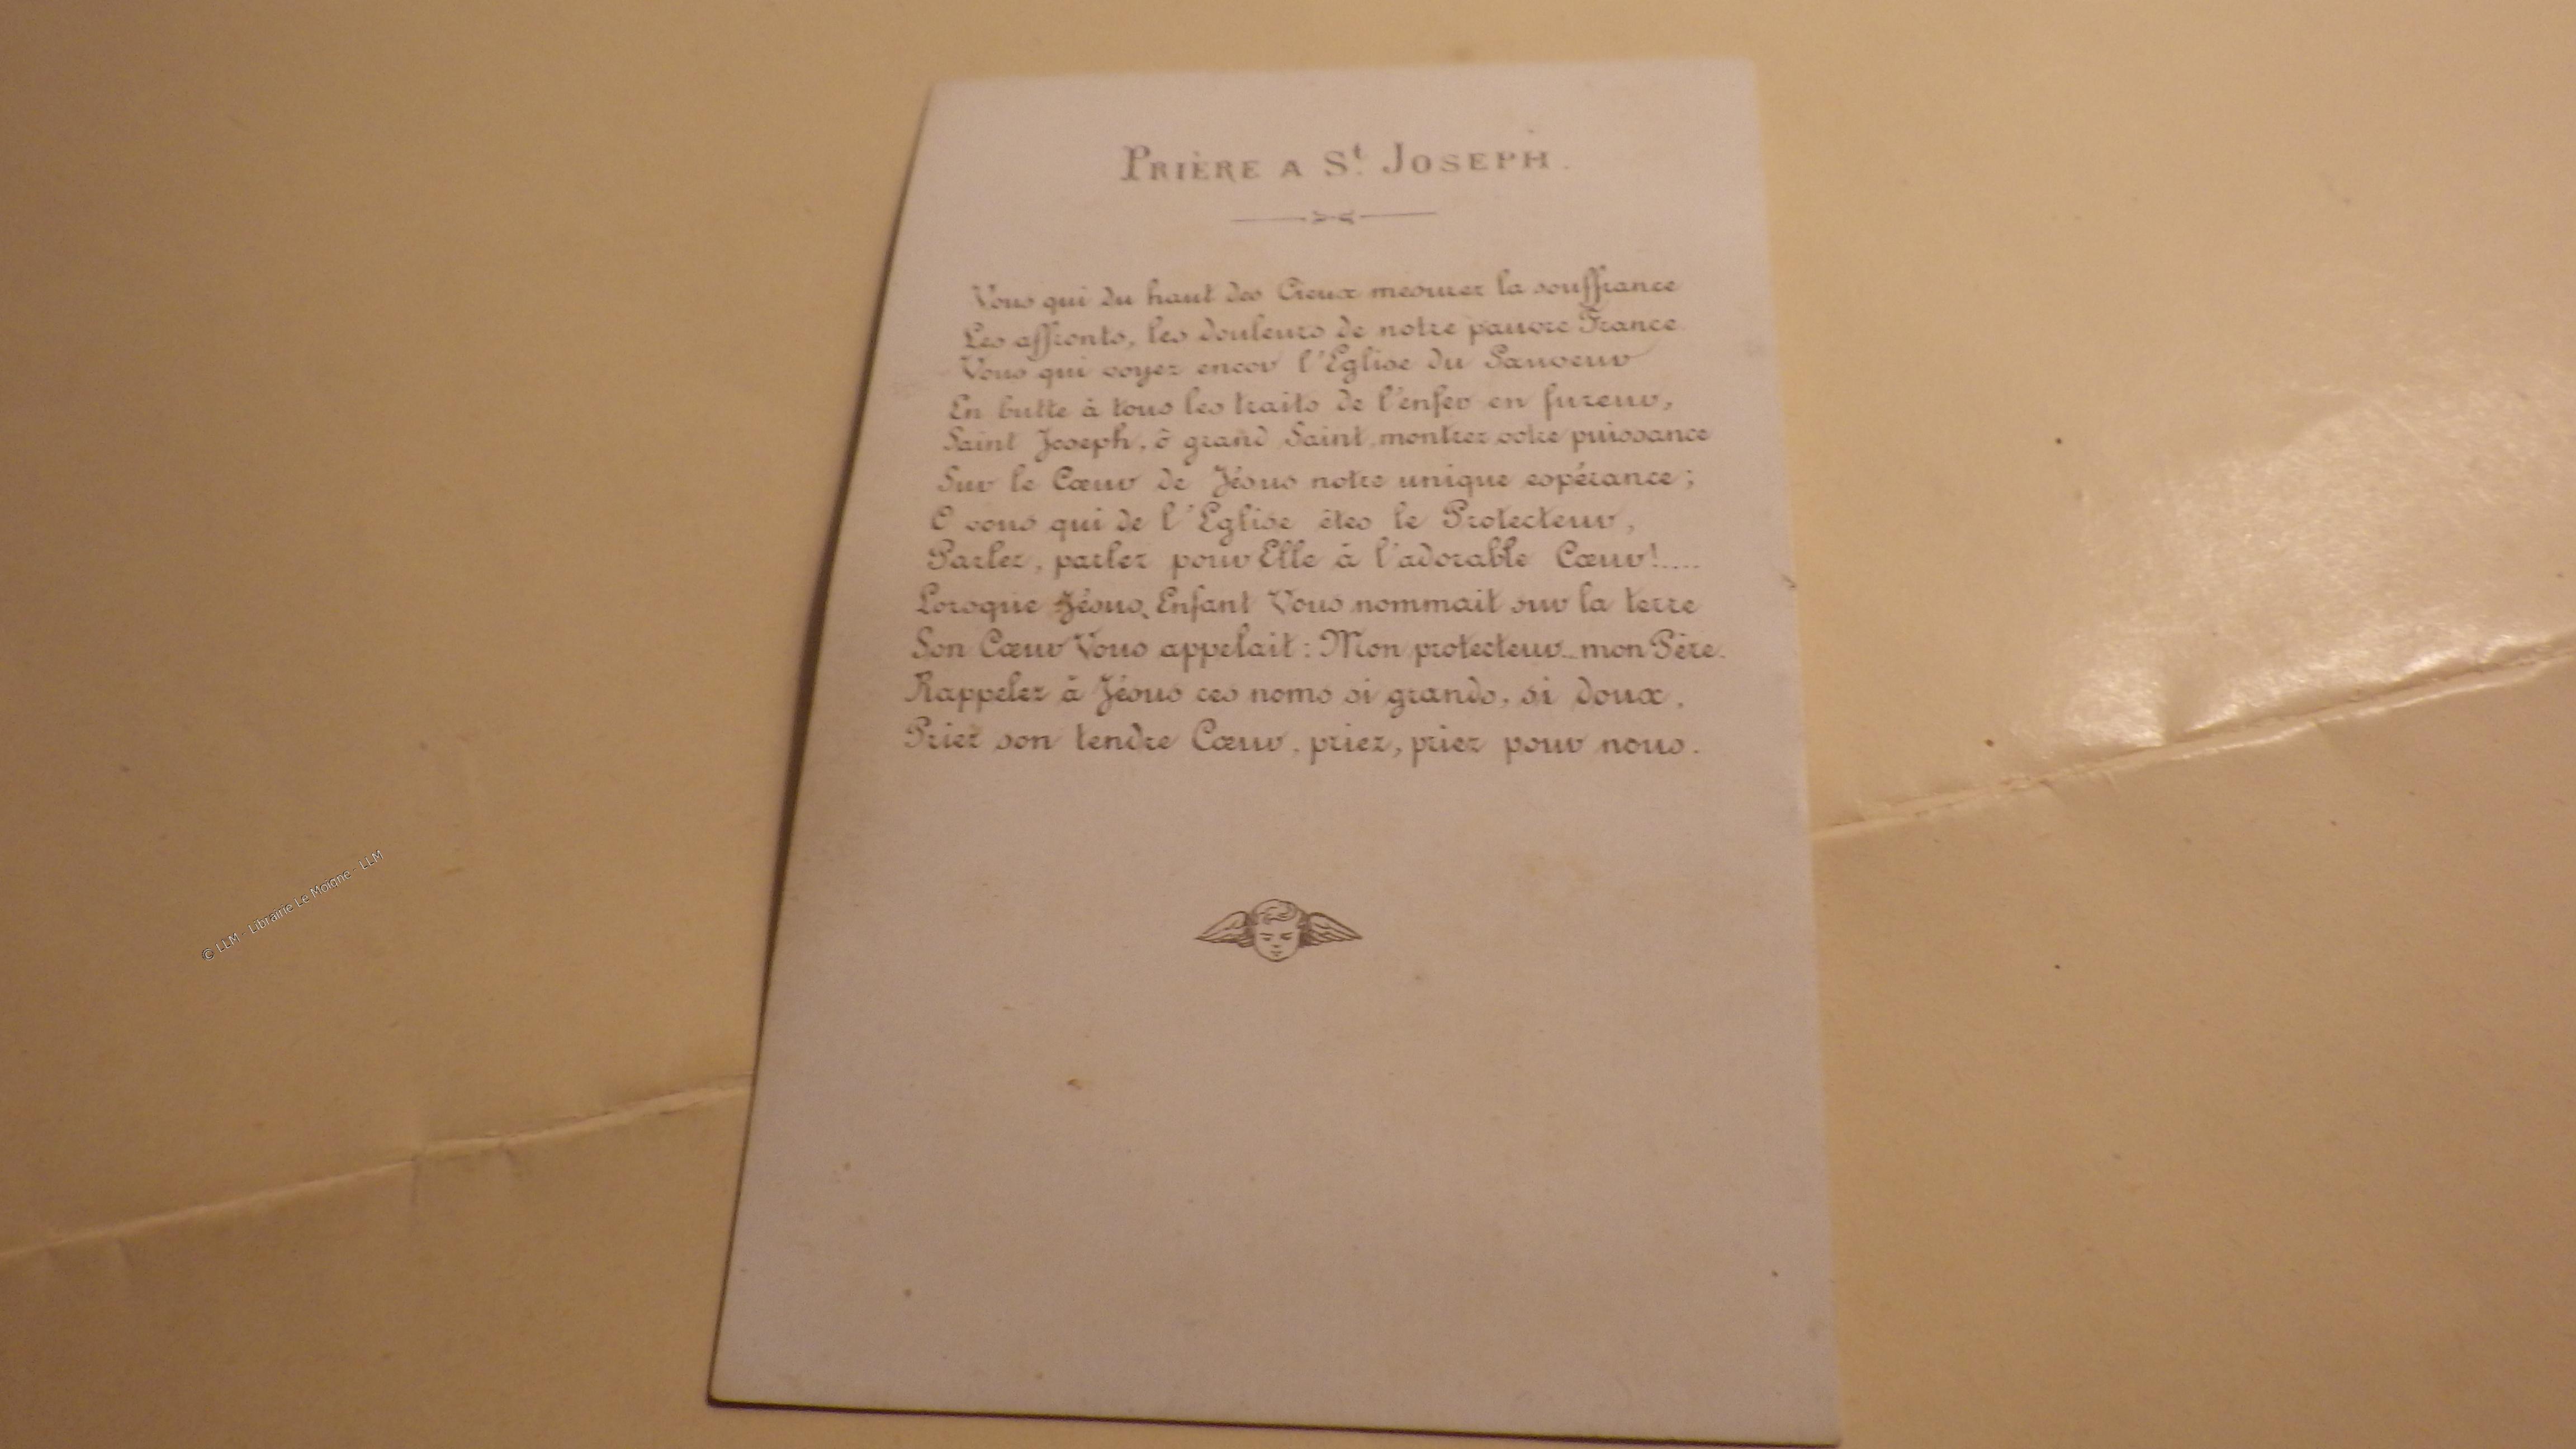 PRIÈRE A St. JOSEPH.
Vous qui du haut des Cieux mesurez la souffrance
Les affronts, les douleurs de notre pauvre France.
Vous qui voyez encor l'Eglise du Sauveur
En butte à tous les traits de l'enfer en fureur,
Saint Joseph, ô grand Saint, montrez votre puissance
Sur le Cœur de Jésus notre unique espérance;
O vous qui de l'Eglise êtes le Protecteur,
Parlez, parlez pour Elle à l'adorable Cœur!....
Lorsque Jésus Enfant Vous nommait sur la terre
Son Cœur Vous appelait: Mon protecteur... mon Père.
Rappelez à Jésus ces noms si grands, si doux,
Priez son tendre Cœur, priez, priez pour nous.
© LLM - Librairie Le Moigne - LLM